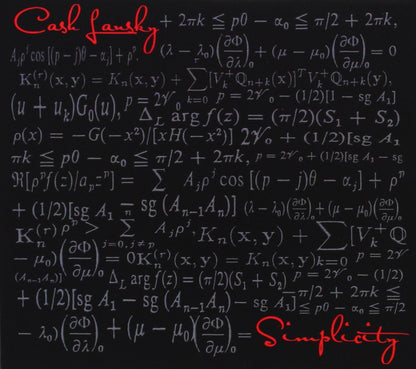 Cash Lansky + 2πk ≤ p0 − α₀ ≤ π/2 + 2πk,
Aⱼρʲ cos [(p − j)θ − αⱼ] + ρᵖ. (λ − λ₀)(∂Φ/∂λ)₀ + (μ − μ₀)(∂Φ/∂μ)₀ = 0
Kₙ⁽ʳ⁾(x, y) = Kₙ(x, y) + ∑ₖ₌₀[Vₖ⁺ℚₙ₊ₖ(x)]ᵀVₖ⁺ℚₙ₊ₖ(y),
(u + uₖ)G₀(u), p = 2𝒱₀ Δ_L arg f(z) = (π/2)(S₁ + S₂)
ρ(x) = −G(−x²)/[xH(−x²)] 2𝒱₀ + (1/2)[sg A₁
πk ≤ p0 − α₀ ≤ π/2 + 2πk, p = 2𝒱₀ + (1/2)[sg A₁ − sg
ℜ[ρᵖf(z)/aₚ₋ᵖ] = ∑ Aⱼρʲ cos [(p − j)θ − αⱼ] + ρᵖ
+ (1/2)[sg A₁ − sg (Aₙ₋₁Aₙ)] (λ − λ₀)(∂Φ/∂λ)₀ + (μ − μ₀)(∂Φ/∂μ)₀
Kₙ⁽ʳ⁾ ρᵖ > ∑ j=0, j≠p Aⱼρʲ. Kₙ(x, y) + ∑[Vₖ⁺ℚ
− μ₀)(∂Φ/∂μ)₀ = 0Kₙ⁽ʳ⁾(x, y) = Kₙ(x, y) k=0 p = 2𝒱₀ − (1/2)
(Aₙ₋₁Aₙ)] Δ_L arg f(z) = (π/2)(S₁ + S₂)
+ (1/2)[sg A₁ − sg (Aₙ₋₁Aₙ) − sg A₁] −π/2 + 2πk ≤
≤ p0 − α₀ ≤
− λ₀)(∂Φ/∂λ)₀ + (μ − μ₀)(∂Φ/∂μ)₀ = Simplicity